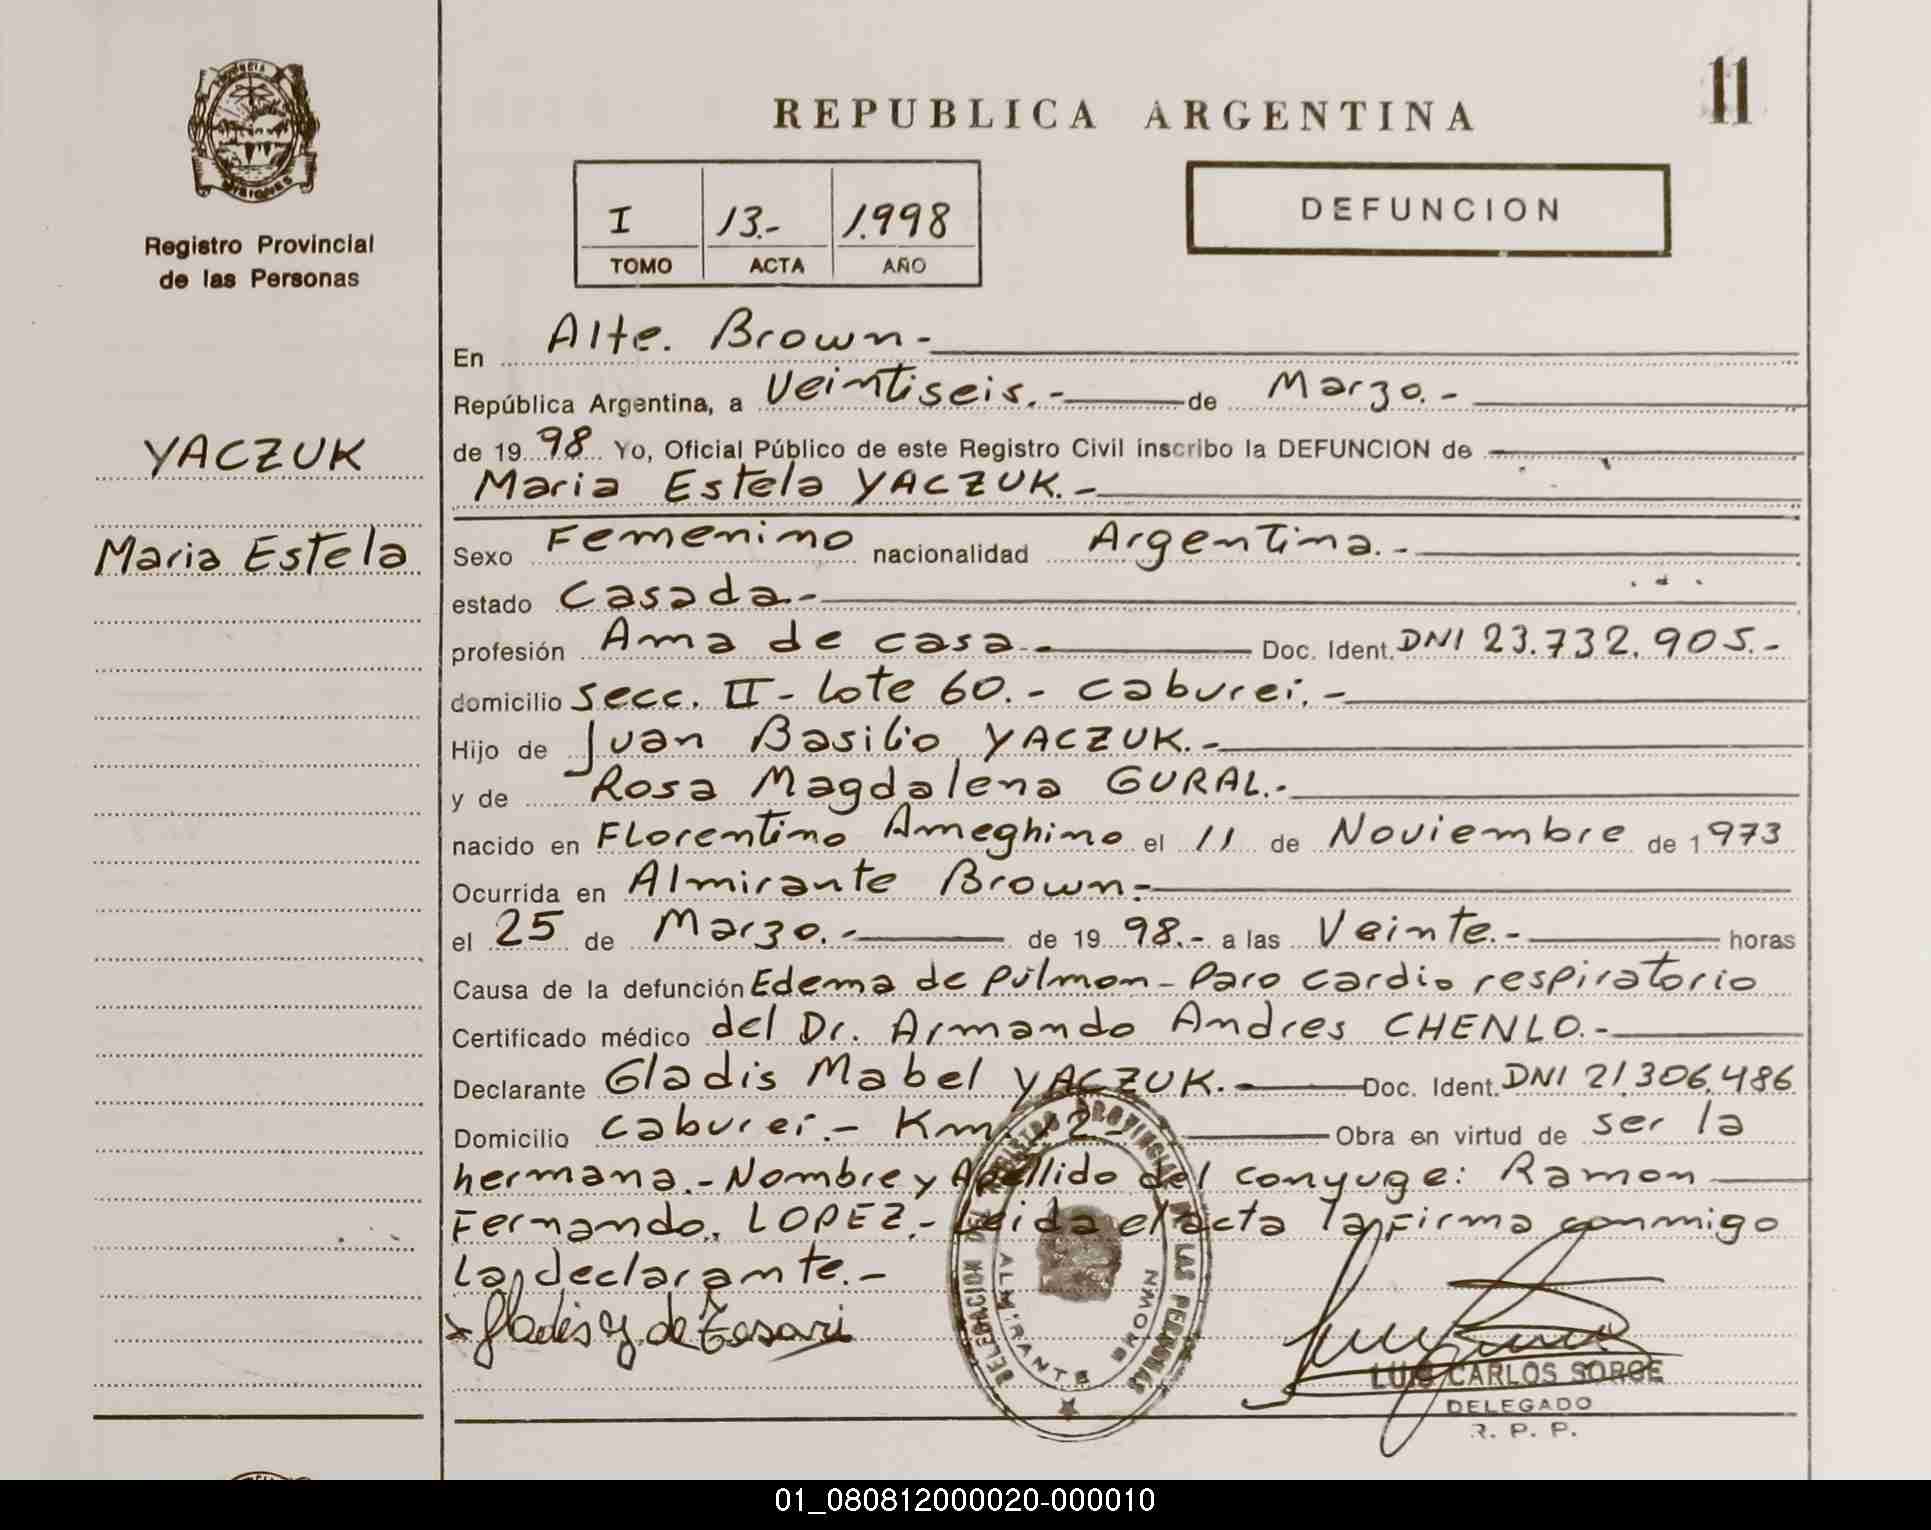 11
PROVINCIA
MISIONES
Registro Provincial
de las Personas
REPUBLICA ARGENTINA
I 13.- 1.998
TOMO ACTA AÑO
DEFUNCION
YACZUK
Maria Estela
En Alte. Brown.-
República Argentina, a Veintiseis.- de Marzo.-
de 19 98 Yo, Oficial Público de este Registro Civil inscribo la DEFUNCION de
Maria Estela YACZUK.-
Sexo Femenino nacionalidad Argentina.-
estado Casada.-
profesión Ama de casa.- Doc. Ident. DNI 23.732.905.-
domicilio Secc. II - Lote 60.- Caburei.-
Hijo de Juan Basilio YACZUK.-
y de Rosa Magdalena GURAL.-
nacido en Florentino Ameghino el 11 de Noviembre de 1973
Ocurrida en Almirante Brown.-
el 25 de Marzo.- de 19 98.- a las Veinte.- horas
Causa de la defunción Edema de pulmon - Paro cardio respiratorio
Certificado médico del Dr. Armando Andres CHENLO.-
Declarante Gladis Mabel YACZUK.- Doc. Ident. DNI 21.306.486
Domicilio Caburei.- Km 2 Obra en virtud de ser la
hermana.- Nombre y Apellido del conyuge: Ramon
Fernando, LOPEZ.- Leida el acta la firma conmigo
La declarante.-
DELEGACION DEL REGISTRO PROVINCIAL DE LAS PERSONAS
ALMIRANTE BROWN
LUIS CARLOS SORGE
DELEGADO
R. P. P.
01_080812000020-000010